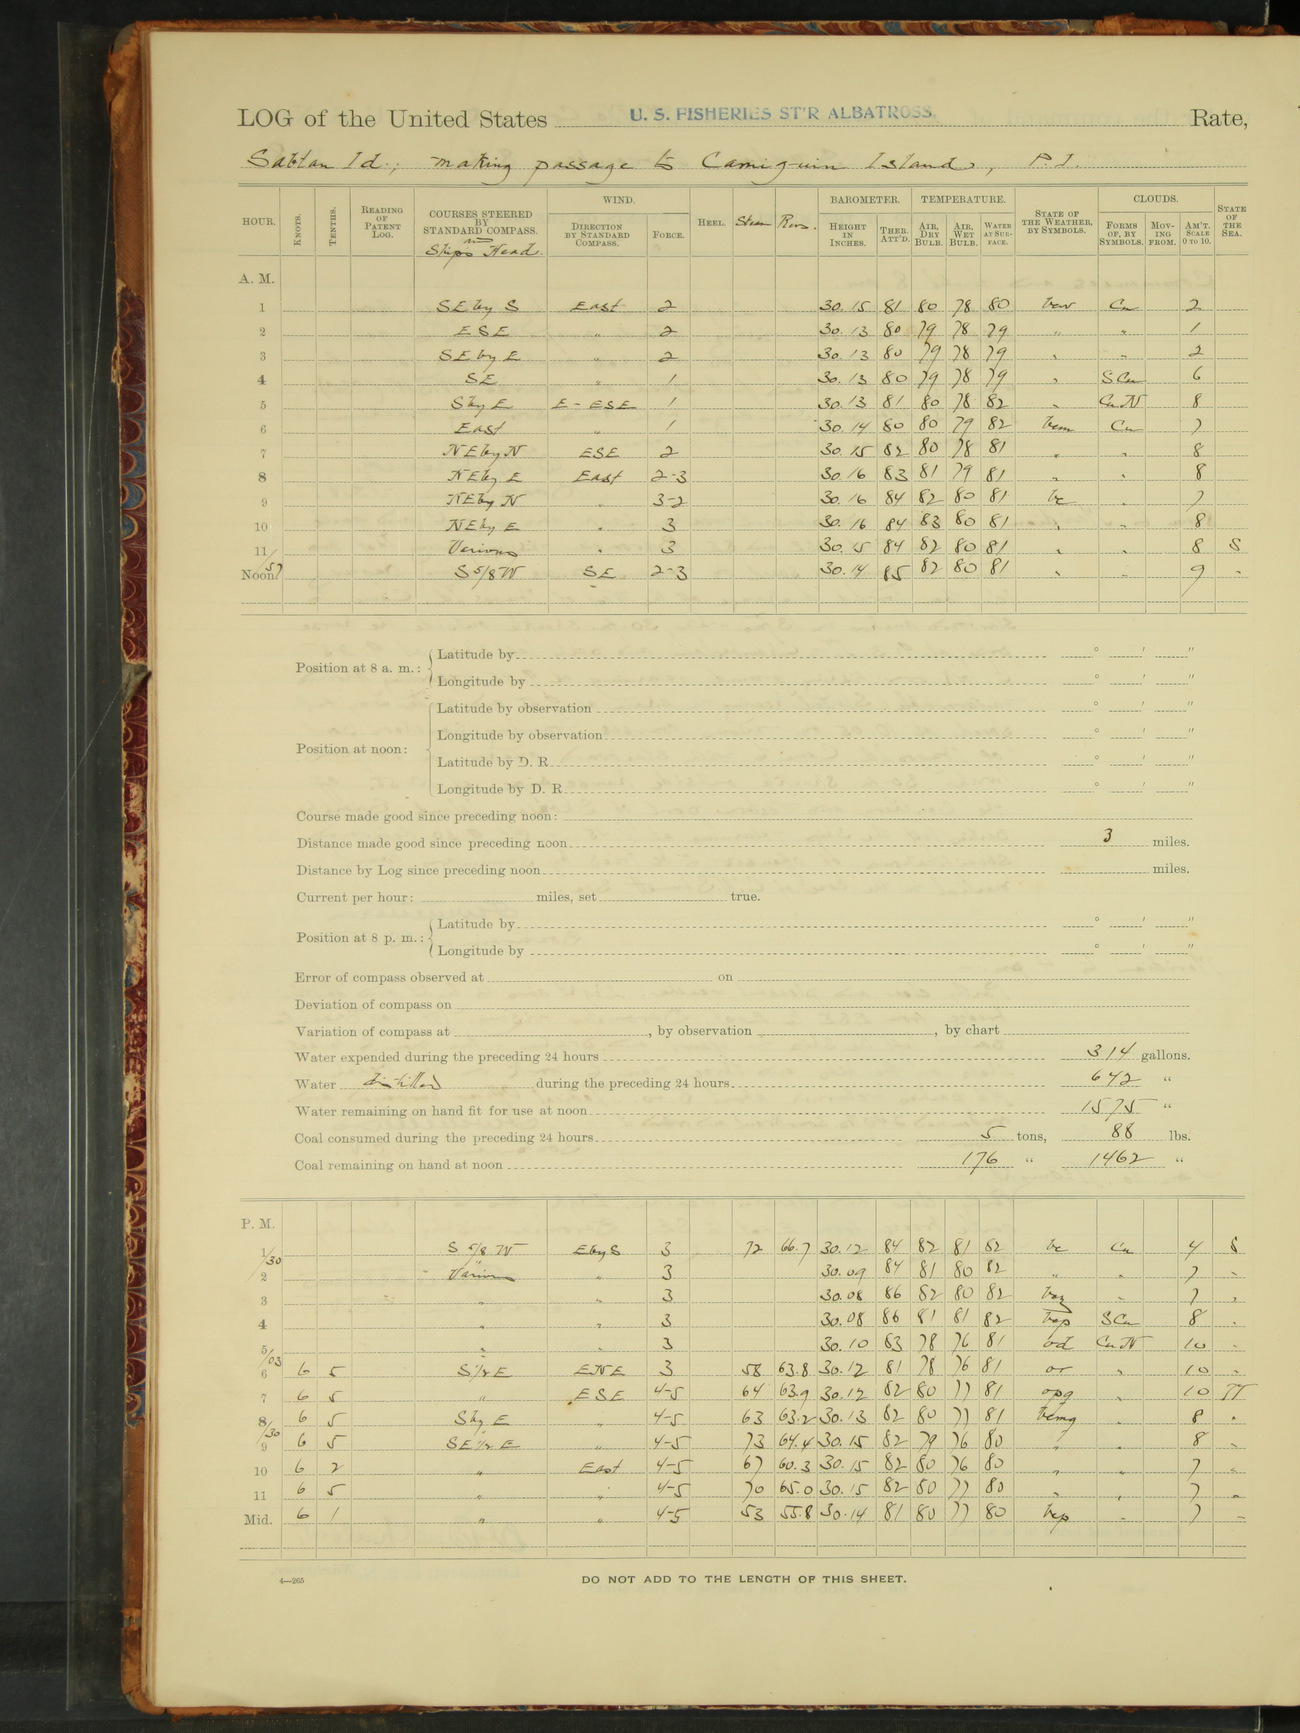 LOG of the United States U. S. FISHERIES ST'R ALBATROSS. Rate,
Sabtan Id.; making passage to Camiguin Island, P. I.
HOUR. KNOTS. TENTHS. READING OF PATENT LOG. COURSES STEERED BY STANDARD COMPASS. and Ship's Head. WIND. DIRECTION BY STANDARD COMPASS. FORCE. HEEL. Steam Revs. BAROMETER. HEIGHT IN INCHES. THER. ATT'D. TEMPERATURE. AIR, DRY BULB. AIR, WET BULB. WATER AT SURFACE. STATE OF THE WEATHER, BY SYMBOLS. CLOUDS. FORMS OF, BY SYMBOLS. MOVING FROM. AM'T. SCALE 0 TO 10. STATE OF THE SEA.
A. M.
1 SE by S East 2 30.15 81 80 78 80 Cu 2
2 ESE " 2 30.13 80 79 78 79 " " 1
3 SE by E " 2 30.13 80 79 78 79 " " 2
4 SE " 1 30.13 80 79 78 79 " S Cu 6
5 S by E E - ESE 1 30.13 81 80 78 82 " Cu N 8
6 East " 1 30.14 80 80 79 82 bcm Cu 7
7 NE by N ESE 2 30.15 82 80 78 81 " " 8
8 NE by E East 2-3 30.16 83 81 79 81 " " 8
9 NE by N " 3-2 30.16 84 82 80 81 bc " 7
10 NE by E " 3 30.16 84 83 80 81 " " 8
11 Various " 3 30.15 84 82 80 81 " " 8 S
/57
Noon S 5/8 W SE 2-3 30.14 85 82 80 81 " " 9 "
Position at 8 a. m.: Latitude by ° ′ ″
Longitude by ° ′ ″
Position at noon: Latitude by observation ° ′ ″
Longitude by observation ° ′ ″
Latitude by D. R. ° ′ ″
Longitude by D. R. ° ′ ″
Course made good since preceding noon:
Distance made good since preceding noon 3 miles.
Distance by Log since preceding noon miles.
Current per hour: miles, set true.
Position at 8 p. m.: Latitude by ° ′ ″
Longitude by ° ′ ″
Error of compass observed at on
Deviation of compass on
Variation of compass at , by observation , by chart
Water expended during the preceding 24 hours 314 gallons.
Water distilled during the preceding 24 hours 642 "
Water remaining on hand fit for use at noon 1575 "
Coal consumed during the preceding 24 hours 5 tons, 88 lbs.
Coal remaining on hand at noon 176 " 1462 "
P. M.
1 S 5/8 W E by S 3 72 66.7 30.12 84 82 81 82 bc Cu 4 S
/30
2 Various " 3 30.09 84 81 80 82 " " 7 "
3 " " 3 30.08 86 82 80 82 " 7 "
4 " " 3 30.08 86 81 81 82 bcp S Cu 8 "
5 " " 3 30.10 83 78 76 81 od Cu N 10 "
/03
6 6 5 S 1/2 E ENE 3 58 63.8 30.12 81 78 76 81 or " 10 "
7 6 5 " ESE 4-5 64 63.9 30.12 82 80 77 81 opq " 10
8 6 5 S by E " 4-5 63 63.2 30.13 82 80 77 81 bcmq " 8 "
/30
9 6 5 SE 1/2 E " 4-5 73 64.4 30.15 82 79 76 80 " " 8 "
10 6 2 " East 4-5 67 60.3 30.15 82 80 76 80 " " 7 "
11 6 5 " " 4-5 70 65.0 30.15 82 80 77 80 " " 7 "
Mid. 6 1 " " 4-5 53 55.8 30.14 81 80 77 80 bcp " 7 "
4—265
DO NOT ADD TO THE LENGTH OF THIS SHEET.